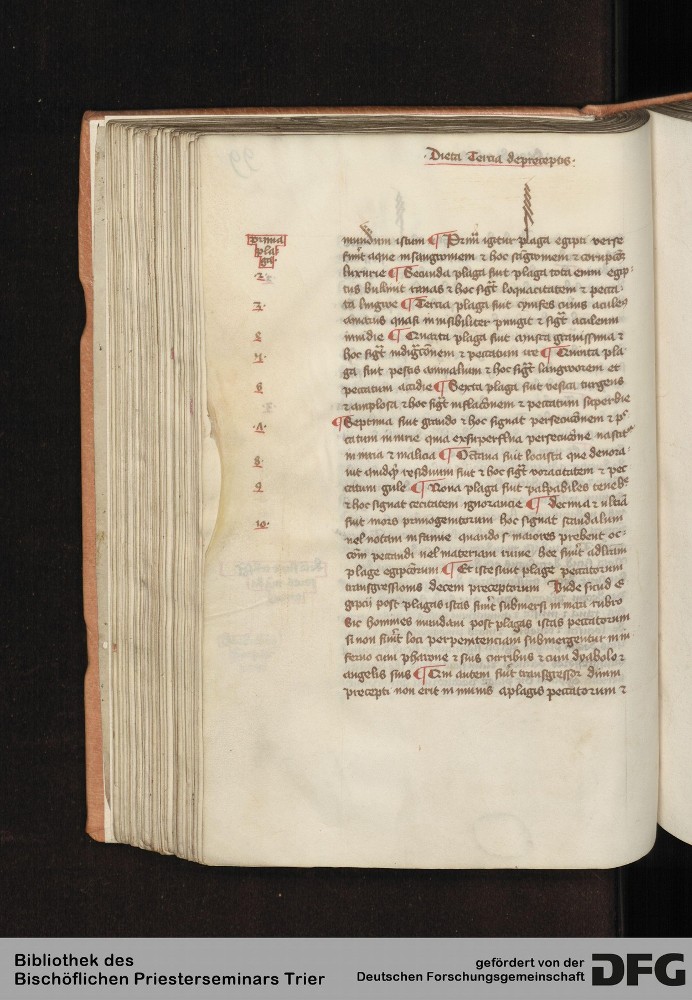 Dieta Tercia de preceptis
prima
plaga
2
3
4
5
6
7
8
9
10
mundum istum ¶ Prima igitur plaga egipti verse
sunt aque in sanguinem & hoc significat
luxurie ¶ Secunda plaga fuit plaga tota enim egip
tus bullivit ranas & hoc sigt loquacitatem & pecca
ta lingwe ¶ Tercia plaga fuit cynifes cuius acule
amarus quasi invisibiliter pungit & sigt aculeum
invidie ¶ Quarta plaga fuit gravissima &
hoc sigt indignacionem & peccatum ire ¶ Quinta pla
ga fuit pestis animalium & hoc sigt langworem et
peccatum accidie ¶ Sexta plaga fuit vesica turgens
& hoc sigt inflacionem & peccatum superbie
¶ Septima fuit grando & hoc signat persecucionem &
catum in ire quia ex superflua persecucione nascit
in ira & malicia ¶ Octava fuit locusta que denora
vit quidquid residuum fuit & hoc sigt voracitatem & pec
catum gule ¶ Nona plaga fuit palpabiles teneb
& hoc signat cecitatem ignorancie ¶ decima & ultima
fuit mors primogenitorum hoc signat scandalum
vel quando maiores prebent oc
com peccandi vel materiam ruine hee sunt
plage egipciorum ¶ Et iste sunt plage peccatorum
transgressionis decem preceptorum Unde sicud e
gipcii post plagas istas sunt submersi in mari rubro
Sic homines mundani post plagas istas peccatorum
si non sunt loti per penitenciam submergentur in in
ferno cum pharaone & suis curribus & cum dyabolo &
angelis suis ¶ Cum autem sunt transgressor divini
precepti non erit inmunis a plagis peccatorum &
Bibliothek des
Bischöflichen Priesterseminars Trier
gefördert von der
Deutschen Forschungsgemeinschaft
DFG